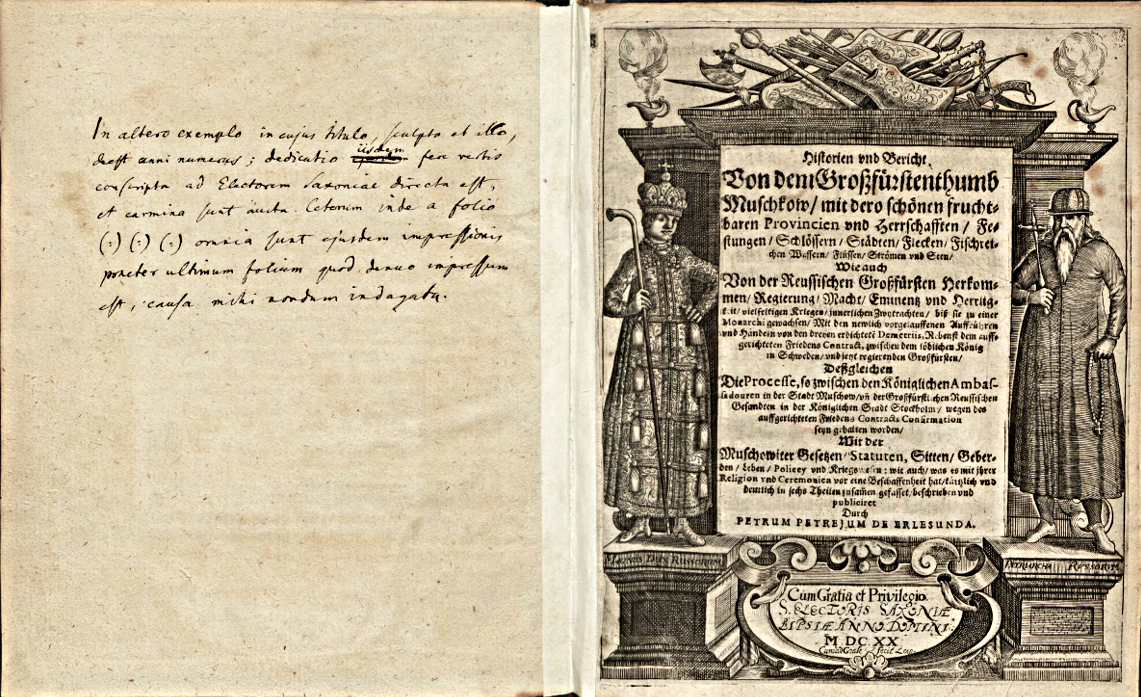 In altero exemplo in cujus titulo, sculpto et illo,
deest anni numerus; dedicatio iisdem fere verbis
conscripta ad Electorem Saxoniae directa est,
et carmina sunt aucta. Ceterum inde a folio
(·) (·) (·) omnia sunt ejusdem impressionis
praeter ultimum folium quod denuo impressum
est, causa mihi nondum indagata.
Historien vnd Bericht
Von dem Großfürstenthumb
Muschkow/ mit dero schönen frucht-
baren Provincien vnd Herrschafften/ Fe-
stungen/ Schlössern/ Städten/ Flecken/ Fischrei-
chen Wassern/ Flüssen/ Strömen vnd Seen/
Wie auch
Von der Reussischen Großfürsten Herkom-
men/ Regierung/ Macht/ Eminentz vnd Herrlig-
keit/ vielfeltigen Kriegen/ jnnerlichen Zwytrachten/ biß sie zu einer
Monarchi gewachsen/ Mit den newlich vorgelauffenen Auffrühren
vnd Händeln von den dreyen erdichteten Demetriis, Nebenst dem auff-
gerichteten Friedens Contract, zwischen dem löblichen König
in Schweden/ vnd jetzt regierenden Großfürsten/
Deßgleichen
Die Processe, so zwischen den Königlichen Ambas-
sadouren in der Stadt Muschow/ vñ der Großfürstlichen Reussischen
Gesandten in der Königlichen Stadt Stockholm/ wegen des
auffgerichteten Friedens Contracts Confirmation
seyn gehalten worden/
Mit der
Muschowiter Gesetzen/ Statuten, Sitten/ Geber-
den/ Leben/ Policey vnd Kriegswesen: wie auch/ was es mit jhrer
Religion vnd Ceremonien vor eine Beschaffenheit hat/ kürtzlich vnd
deutlich in sechs Theilen zusam̃en gefasset/ beschrieben vnd
publiciret
Durch
PETRUM PETREJUM DE ERLESUNDA.
DUX RUSSORUM
PATRIARCHA RUSSORUM
Cum Gratia et Privilegio
S. ELECTORIS SAXONIÆ
LIPSIÆ ANNO DOMINI:
M DC XX
fecit Lips: